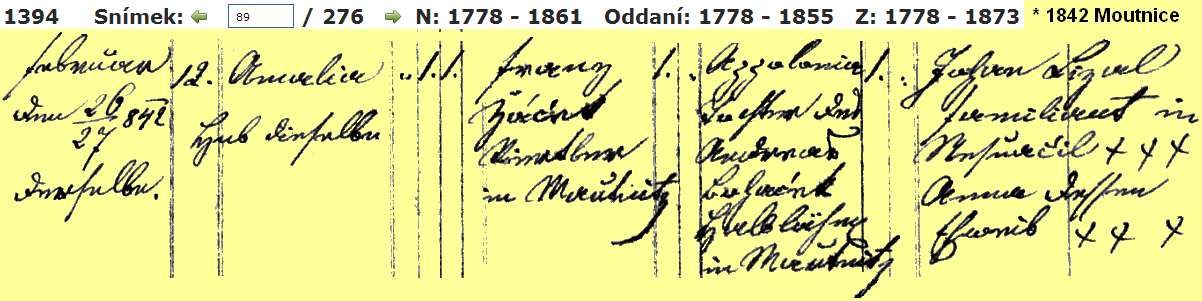 1394 Snímek: 89 / 276 N: 1778 - 1861 Oddaní: 1778 - 1855 Z: 1778 - 1873 * 1842 Moutnice
Februar
den 26/27 842
derselbe.
12. Amalia
Heb dieselbe
1. 1.
Franz
Žáček
Viertler
in Mautnitz
1.
Appolonia
Tochter des
Andreas
Halblähn
in Mautnitz
1.
Johan Lizal
Familiant in
Nesvačil + + +
Anna dessen
Eheweib + + +